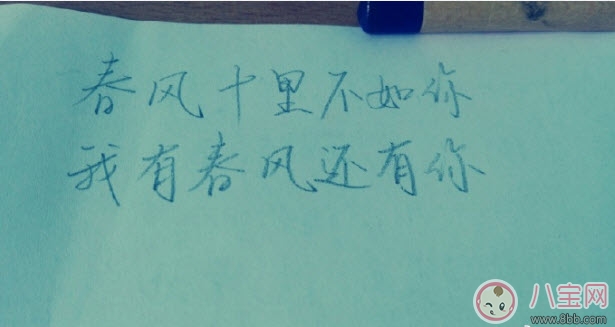 春风十里不如你
我有春风还有你
八宝网
www.8bb.com